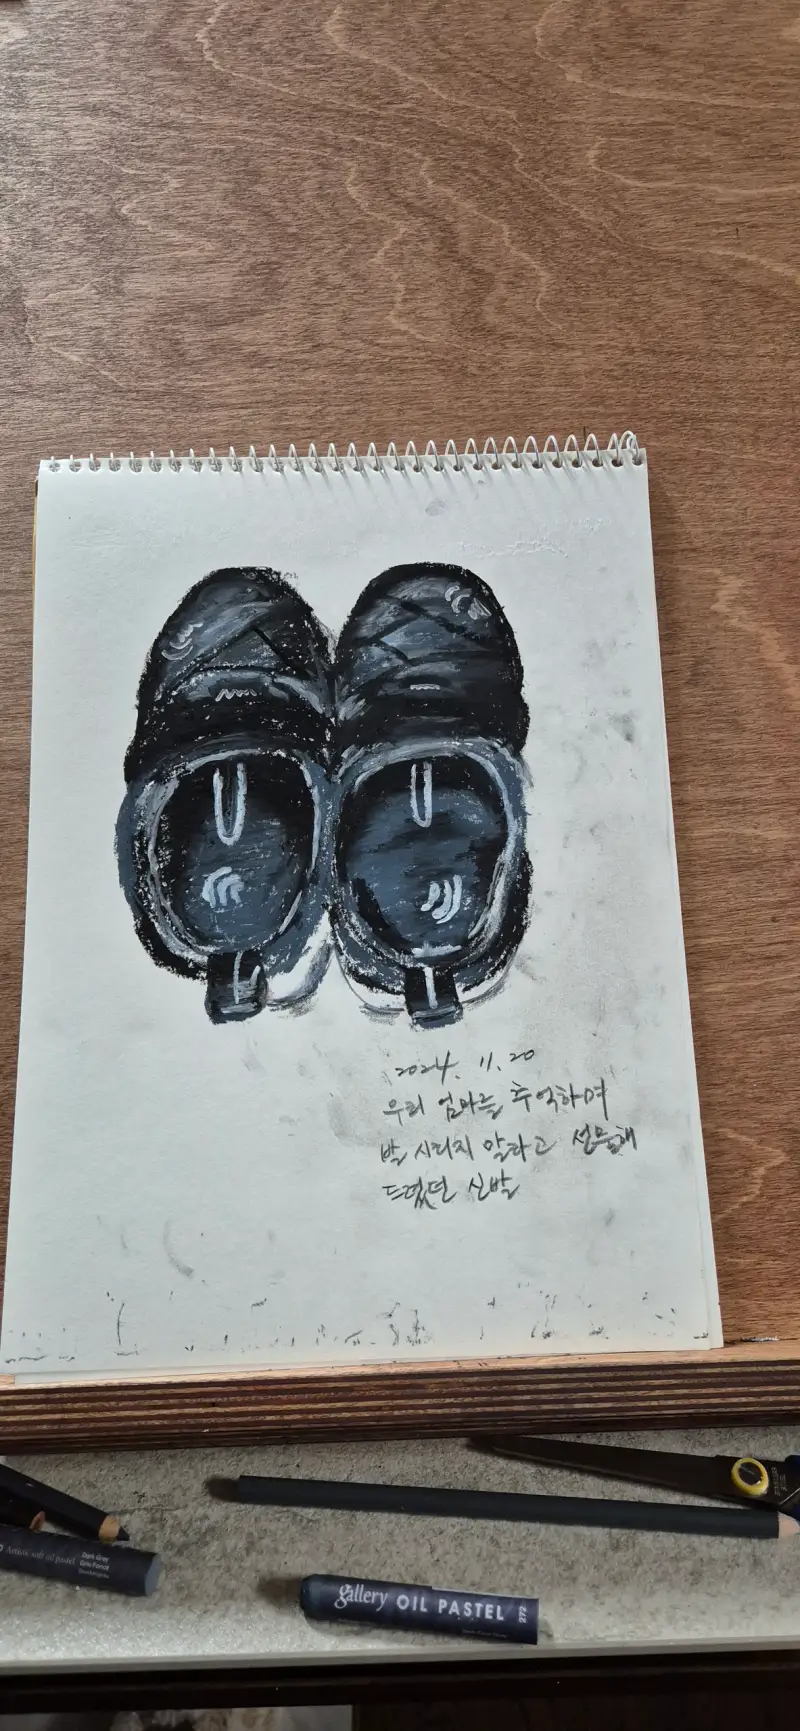 2024. 11. 20
우리 엄마를 추억하며
발 시리지 말라고 선물해
드렸던 신발
Artists' soft oil pastel
Dark Grey
gallery OIL PASTEL 272